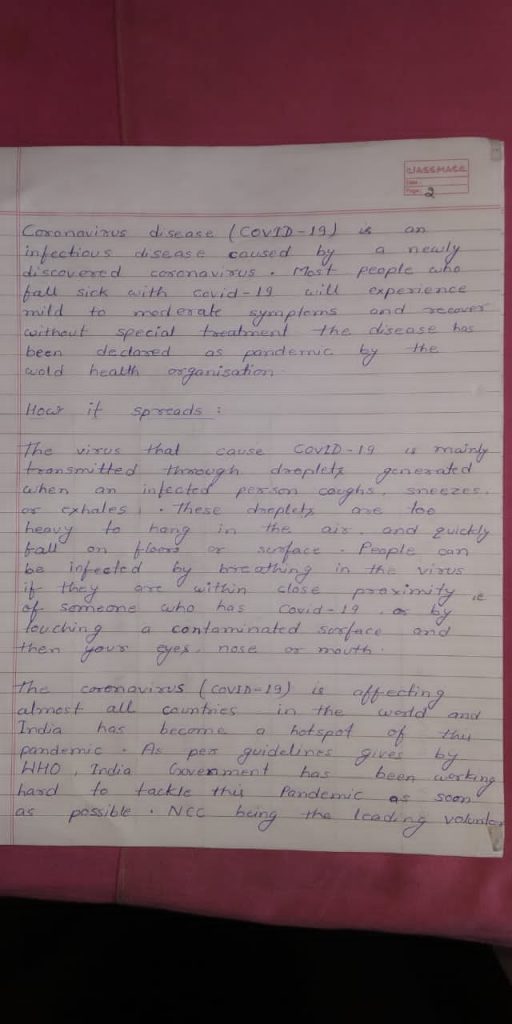 CLASSMATE
Date :
Page : 2
Coronavirus disease (COVID-19) is an
infectious disease caused by a newly
discovered coronavirus . Most people who
fall sick with covid-19 will experience
mild to moderate symptoms and recover
without special treatment the disease has
been declared as pandemic by the
wold health organisation.
How it spreads :
The virus that cause COVID-19 is mainly
transmitted through droplets generated
when an infected person coughs, sneezes,
or exhales . These droplets are too
heavy to hang in the air, and quickly
fall on floors or surface . People can
be infected by breathing in the virus
if they are within close proximity ie
of someone who has Covid-19, or by
touching a contaminated surface and
then your eyes, nose or mouth.
The coronavirus (COVID-19) is affecting
almost all countries in the world and
India has become a hotspot of this
pandemic . As per guidelines gives by
WHO, India Government has been working
hard to tackle this Pandemic as soon
as possible . NCC being the leading